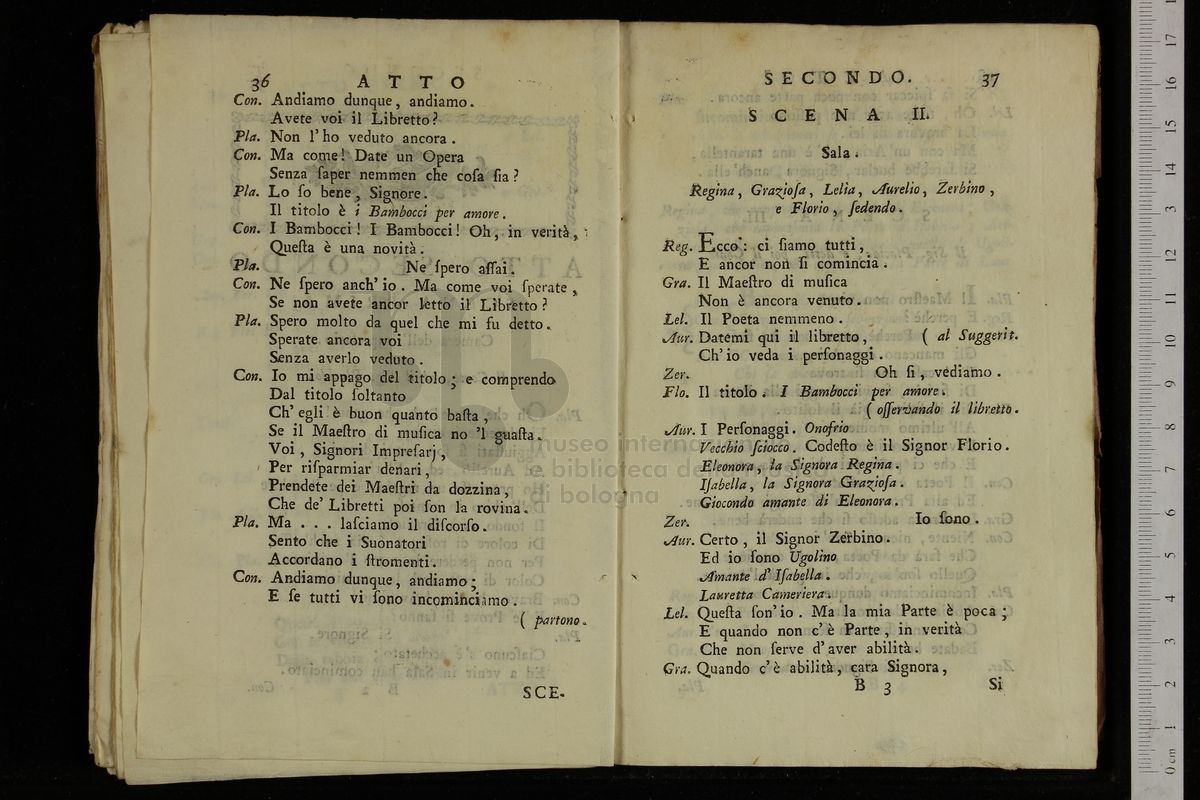 36 ATTO
Con. Andiamo dunque, andiamo.
Avete voi il Libretto?
Pla. Non l'ho veduto ancora.
Con. Ma come! Date un Opera
Senza ſaper nemmen che coſa ſia?
Pla. Lo ſo bene, Signore.
Il titolo è i Bambocci per amore.
Con. I Bambocci! I Bambocci! Oh, in verità,
Queſta è una novità.
Pla. Ne ſpero aſſai.
Con. Ne ſpero anch'io. Ma come voi ſperate,
Se non avete ancor letto il Libretto?
Pla. Spero molto da quel che mi fu detto.
Sperate ancora voi
Senza averlo veduto.
Con. Io mi appago del titolo; e comprendo
Dal titolo ſoltanto
Ch'egli è buon quanto baſta,
Se il Maeſtro di muſica no 'l guaſta.
Voi, Signori Impreſarj,
Per riſparmiar denari,
Prendete dei Maeſtri da dozzina,
Che de' Libretti poi ſon la rovina.
Pla. Ma . . . laſciamo il diſcorſo.
Sento che i Suonatori
Accordano i ſtromenti.
Con. Andiamo dunque, andiamo;
E ſe tutti vi ſono incominciamo.
( partono.
SCE-
SECONDO. 37
SCENA II.
Sala.
Regina, Grazioſa, Lelia, Aurelio, Zerbino,
e Florio, ſedendo.
Reg. Ecco: ci ſiamo tutti,
E ancor non ſi comincia.
Gra. Il Maeſtro di muſica
Non è ancora venuto.
Lel. Il Poeta nemmeno.
Aur. Datemi qui il libretto, ( al Suggerit.
Ch'io veda i perſonaggi.
Zer. Oh ſi, vediamo.
Flo. Il titolo. I Bambocci per amore.
( oſſervando il libretto.
Aur. I Perſonaggi. Onofrio
Vecchio ſciocco. Codeſto è il Signor Florio.
Eleonora, la Signora Regina.
Iſabella, la Signora Grazioſa.
Giocondo amante di Eleonora.
Zer. Io ſono.
Aur. Certo, il Signor Zerbino.
Ed io ſono Ugolino
Amante d'Iſabella.
Lauretta Cameriera.
Lel. Queſta ſon'io. Ma la mia Parte è poca;
E quando non c'è Parte, in verità
Che non ſerve d'aver abilità.
Gra. Quando c'è abilità, cara Signora,
B 3 Si
museo internazionale
e biblioteca della musica
di bologna
0 cm 1 2 3 4 5 6 7 8 9 10 11 12 13 14 15 16 17